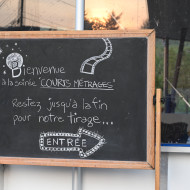 Bienvenue
à la soirée "COURTS MÉTRAGES"
Restez jusqu'à la fin
pour notre tirage...
ENTRÉE